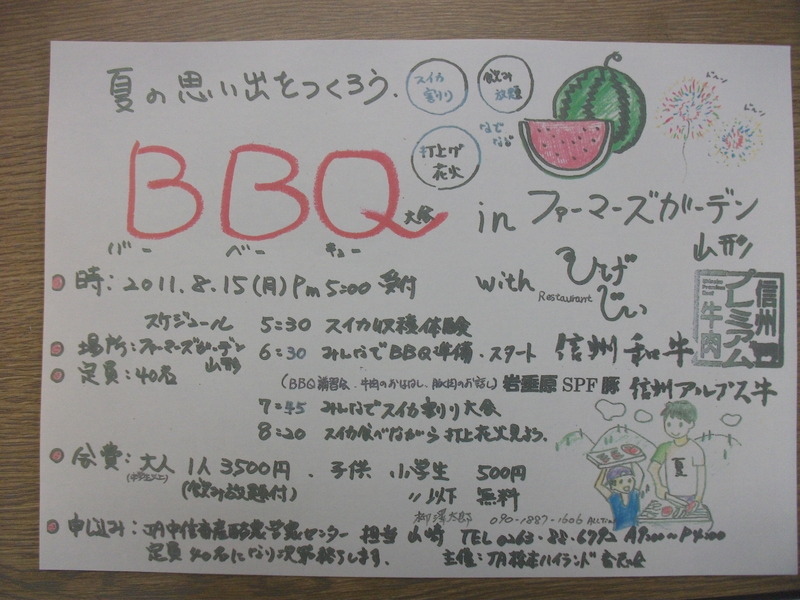 夏の思い出をつくろう、
スイカ割り
飲み放題
打上げ花火
なでなで
BBQ大会 in ファーマーズガーデン山形
バー ベー キュー
with Restaurant ひげじい
信州プレミアム牛肉
時：2011.8.15(月)Pm 5:00 受付
スケジュール 5:30 スイカ収穫体験
場所：ファーマーズガーデン山形
6:30 みんなでBBQ準備、スタート
信州和牛
定員：40名
(BBQ講習会、牛肉のおはなし、豚肉のお話し) 岩垂原SPF豚 信州アルプス牛
7:45 みんなでスイカ割り大会
8:20 スイカ食べながら打上花火見よう。
夏
会費：大人 1人 3500円、子供 小学生 500円
(中学生以上) (飲み放題付) 〃以下 無料
柳澤太郎 090-1887-1606
申し込み： 担当 山崎 TEL 0263-88-6792 A9:00〜P4:00
定員40名になり次第終了します。 主催：JA松本ハイランド